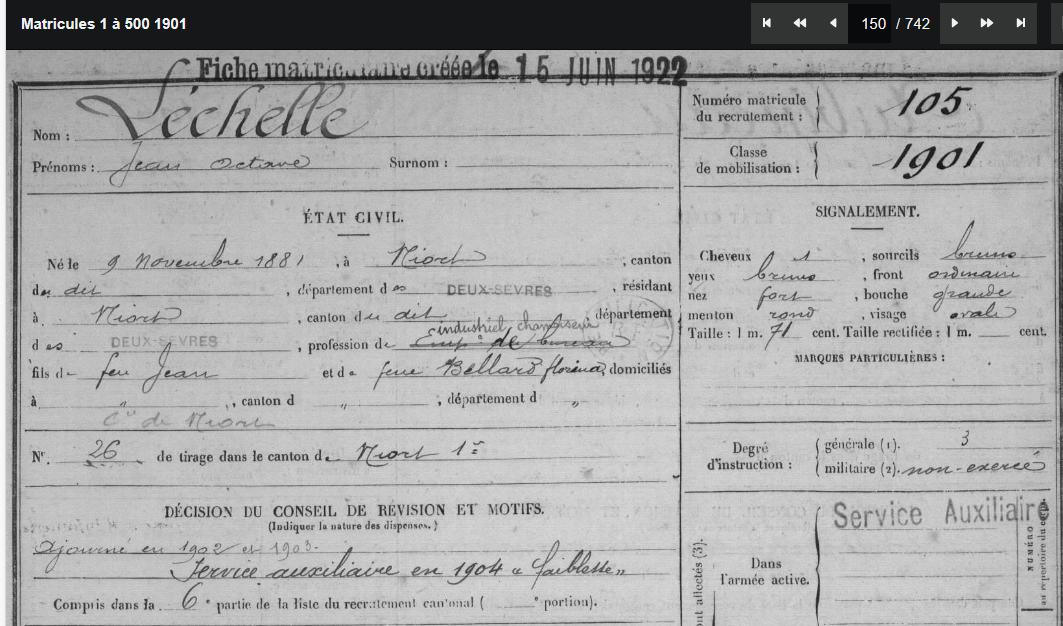 Matricules 1 à 500 1901
150 / 742
Fiche matriculaire créée le 15 JUIN 1922
Nom : Léchelle
Prénoms : Jean Octave Surnom :
Numéro matricule du recrutement : 105
Classe de mobilisation : 1901
ÉTAT CIVIL.
Né le 9 novembre 1881, à Niort, canton
du dit, département des DEUX-SEVRES, résidant
à Niort, canton du dit, département
des DEUX-SEVRES, profession de industriel
fils de feu Jean et de feue Bellard, domiciliés
à „, canton d „, département d „
Con de Niort
No. 26 de tirage dans le canton de Niort 1er
SIGNALEMENT.
Cheveux et, sourcils bruns
yeux bruns, front ordinaire
nez fort, bouche grande
menton rond, visage ovale
Taille : 1 m. 71 cent. Taille rectifiée : 1 m. cent.
MARQUES PARTICULIÈRES :
Degré d'instruction : générale (1). 3
militaire (2). non-exercé
DÉCISION DU CONSEIL DE RÉVISION ET MOTIFS.
(Indiquer la nature des dispenses.)
Ajourné en 1902 et 1903.
Service auxiliaire en 1904 « faiblesse »
Compris dans la 6e partie de la liste du recrutement cantonal ( e portion).
Service Auxiliaire
Dans l'armée active.
NUMÉRO
au répertoire du
affectés (3).